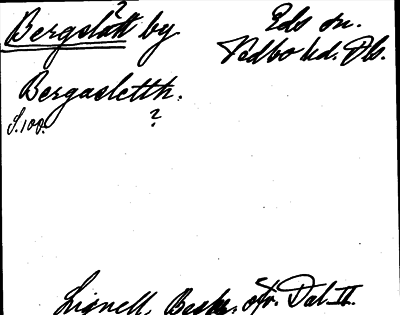 ?
Bergslätt by
Eds sn.
Vedbo hd. Dls.
Bergasletth.
S. 100.
?
Lignell, Beskr. öfv. Dal II.